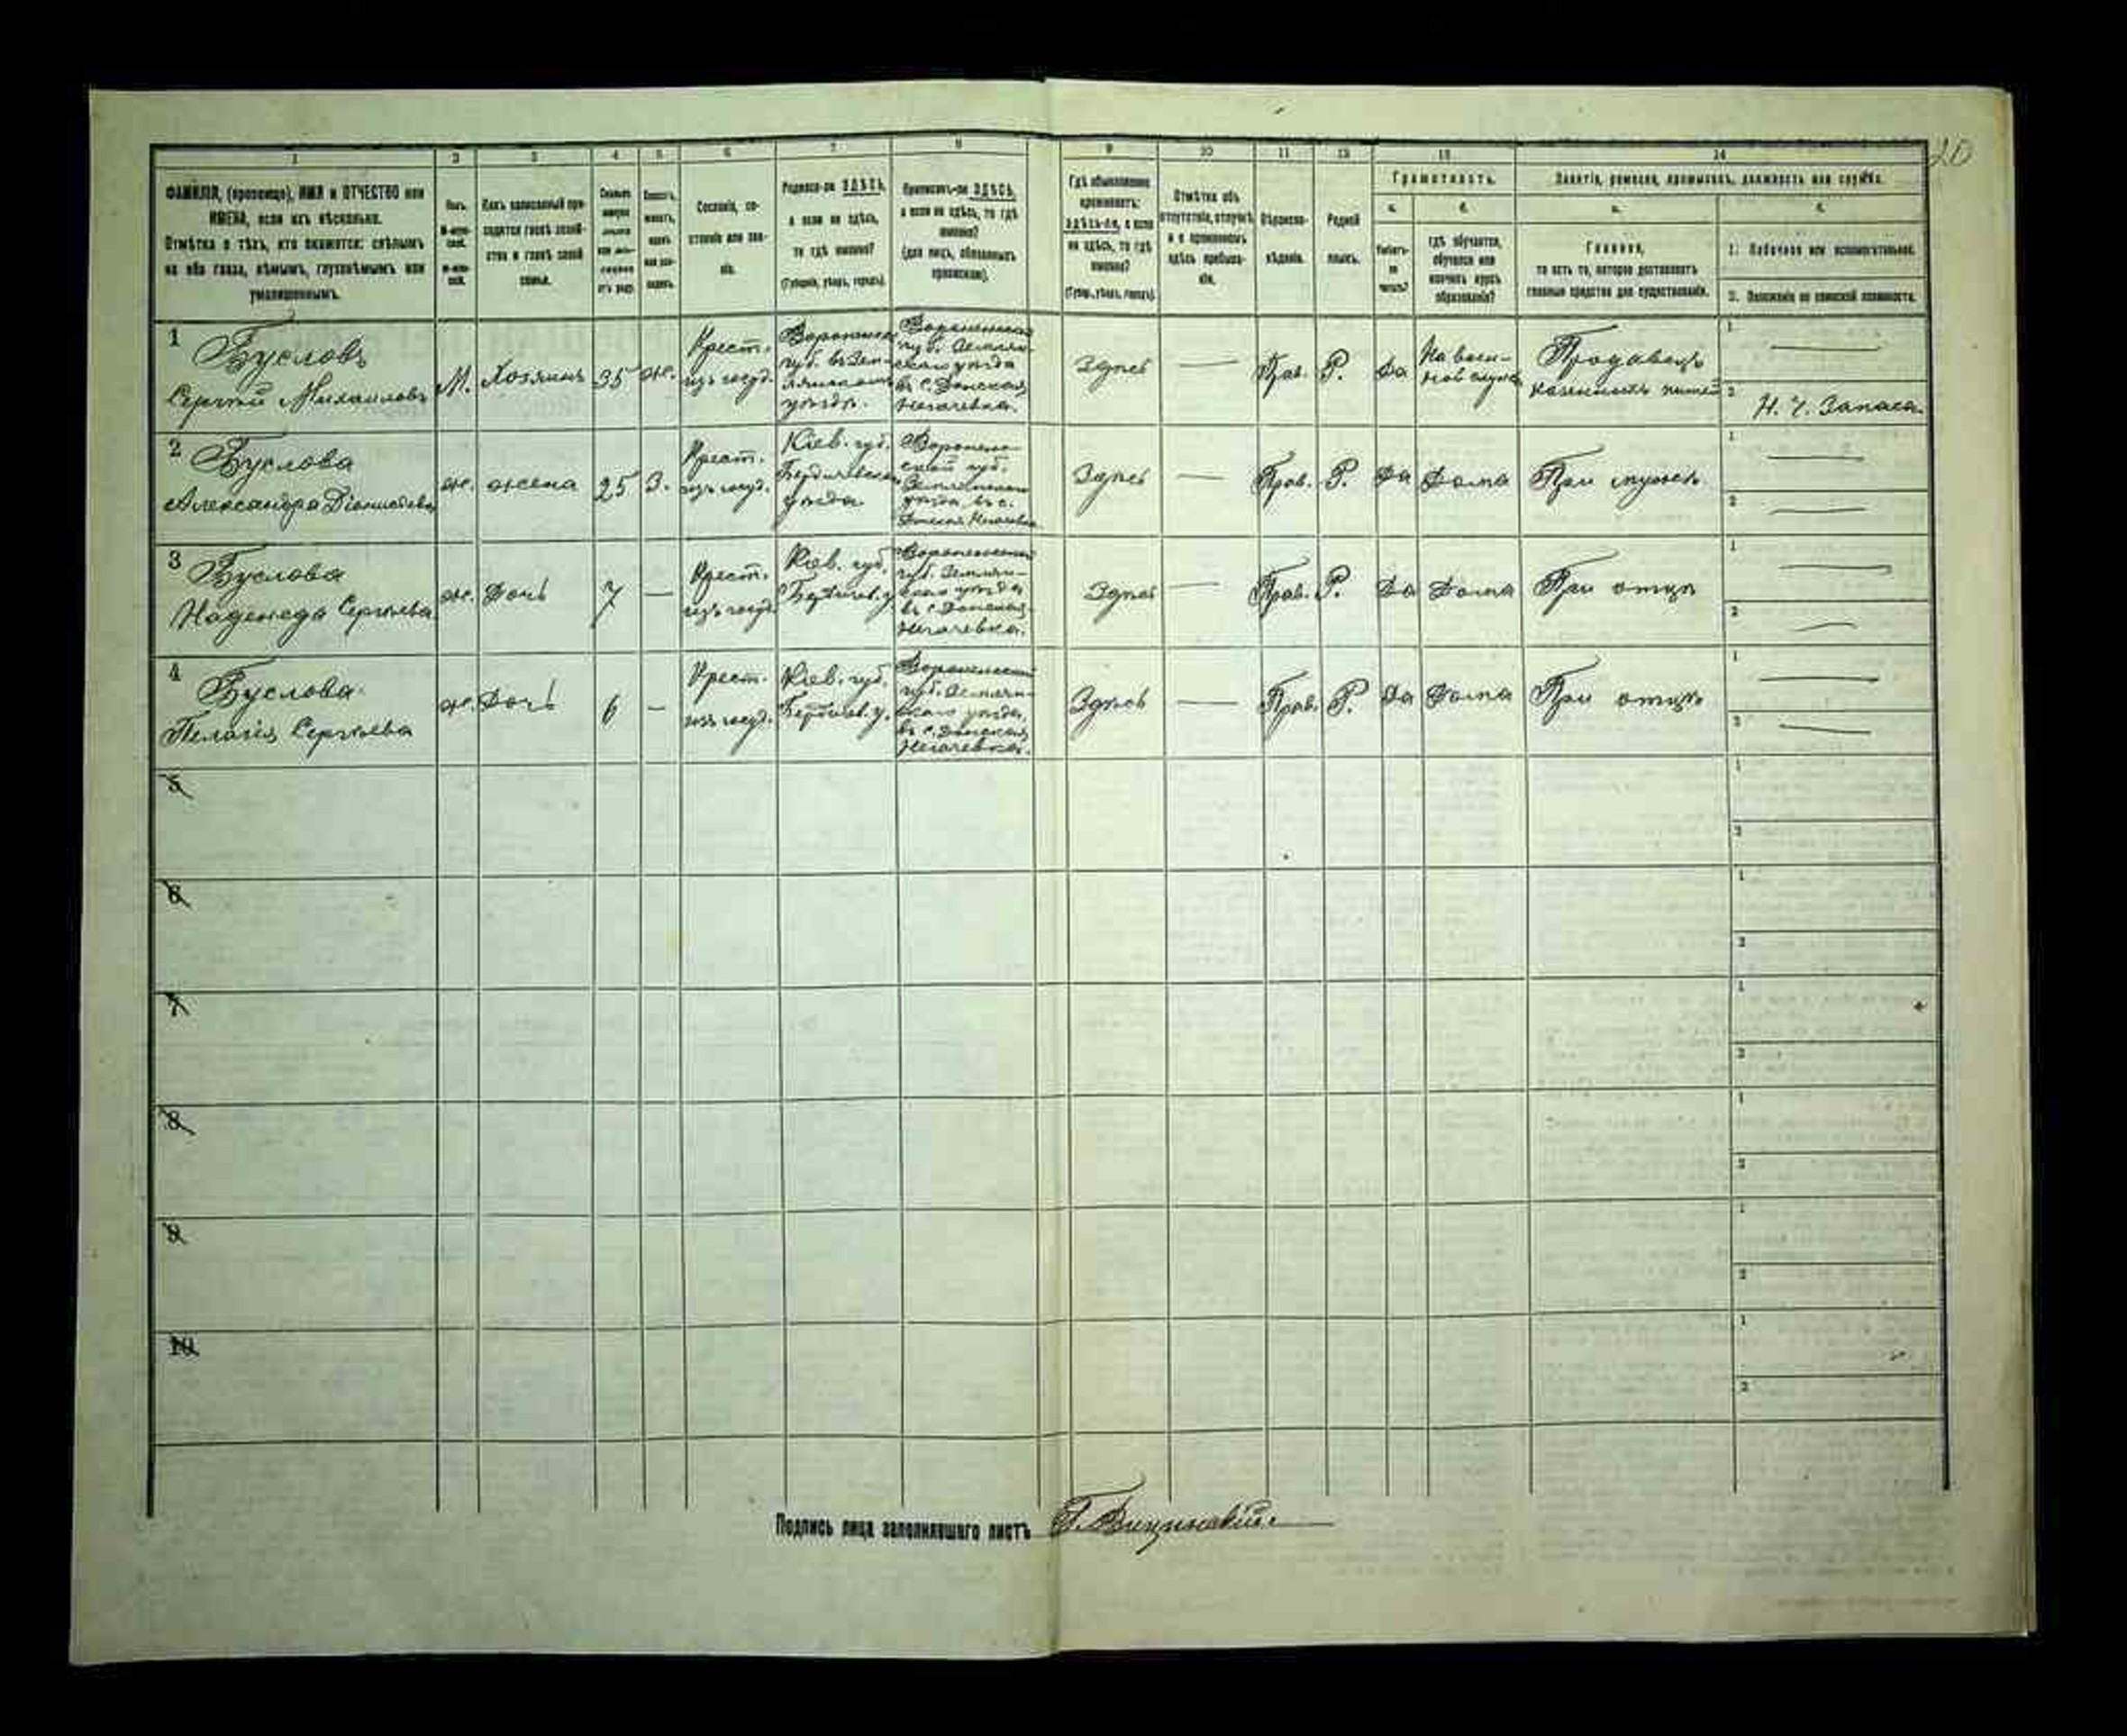 20
1 2 3 4 5 6 7 8 9 10 11 12 13 14
ФАМИЛІЯ, (прозвище), ИМЯ и ОТЧЕСТВО или
ИМЕНА, если ихъ нѣсколько.
Отмѣтка о тѣхъ, кто окажется: слѣпымъ
на оба глаза, нѣмымъ, глухонѣмымъ или
умалишеннымъ.
Полъ.
Какъ записанный при-
ходится главѣ хозяй-
ства и главѣ своей
семьи.
Сословіе, со-
стояніе или зва-
ніе.
Родился-ли ЗДѢСЬ,
а если не здѣсь,
то гдѣ именно?
(Губернія, уѣздъ, городъ).
Приписанъ-ли ЗДѢСЬ,
а если не здѣсь, то гдѣ
именно?
(для лицъ, обязанныхъ
припискою).
Гдѣ обыкновенно
проживаетъ:
здѣсь-ли, а если
не здѣсь, то гдѣ
именно?
(Губер., уѣздъ, городъ).
Отмѣтка объ
отсутствіи, отлучкѣ
и о временномъ
здѣсь пребыва-
ніи.
Вѣроиспо-
вѣданіе.
Родной
языкъ.
Грамотность.
а. б.
Умѣетъ-
ли
читать?
гдѣ обучается,
обучался или
кончилъ курсъ
образованія?
Занятіе, ремесло, промыселъ, должность или служба.
а. б.
Главное,
то есть то, которое доставляетъ
главныя средства для существованія.
1. Побочное или вспомогательное.
2. Положеніе по воинской повинности.
1
Бусловъ
Сергѣй Михаиловъ
М.
Хозяинъ
35
ж.
Крест.
изъ госуд.
Воронежск.
губ. въ Зем-
лянском
уѣздѣ.
Воронежской
губ. Землян-
скаго уѣзда
въ с. Донская
Негачевка.
Здѣсь
—
Прав.
Р.
Да
На воен-
ной служб
Продавецъ
казенныхъ питей
1 —
2 Н. Ч. Запаса.
2
Буслова
Александра Діонисіева
ж.
жена
25
З.
Крест.
изъ госуд.
Кіев. губ.
Бердичевскаго
уѣзда
Воронеж-
ской губ.
Землянскаго
уѣзда, въ с.
Донская Негачевка
Здѣсь
—
Прав.
Р.
Да
Дома
При мужѣ
1 —
2 —
3
Буслова
Надежда Сергѣева
ж.
Дочь
7
—
Крест.
изъ госуд.
Кіев. губ.
Бердичев. у.
Воронежской
губ. Землян-
скаго уѣзда
въ с. Донская
Негачевка.
Здѣсь
—
Прав.
Р.
Да
Дома
При отцѣ
1 —
2 —
4
Буслова
Пелагія Сергѣева
ж.
Дочь
6
—
Крест.
изъ госуд.
Кіев. губ.
Бердичев. у.
Воронежской
губ. Землян-
скаго уѣзда,
въ с. Донская
Негачевка.
Здѣсь
—
Прав.
Р.
Да
Дома
При отцѣ
1 —
2 —
5
1
2
6
1
2
7
1
2
8
1
2
9
1
2
10
1
2
Подпись лица заполнявшаго листъ